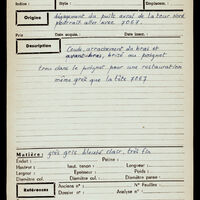 Indice : Style : Emplacem. :
Origine dégagement du puits aval de la tour nord
pourrait aller avec 7067.
Prix Date acquis. : Date insc. :
Description Coude, arrachement du bras et
avant-bras, brisé au poignet
trou dans le poignet pour une restauration
même grès que la tête 7067
Matière : grès gris bleuté clair, très fin
Enduit : Patine :
Hauteur : haut. tenon : Longueur :
Largeur : Epaisseur : Poids :
Diamètre col. : Diamètre panse :
Références Ancien n° : N° Feuilles :
Dossier : Analyse n° :